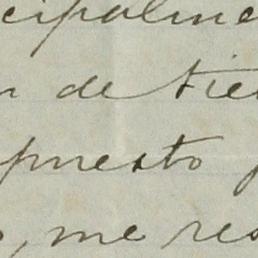 cipalme
n de tie
puesto
, me res